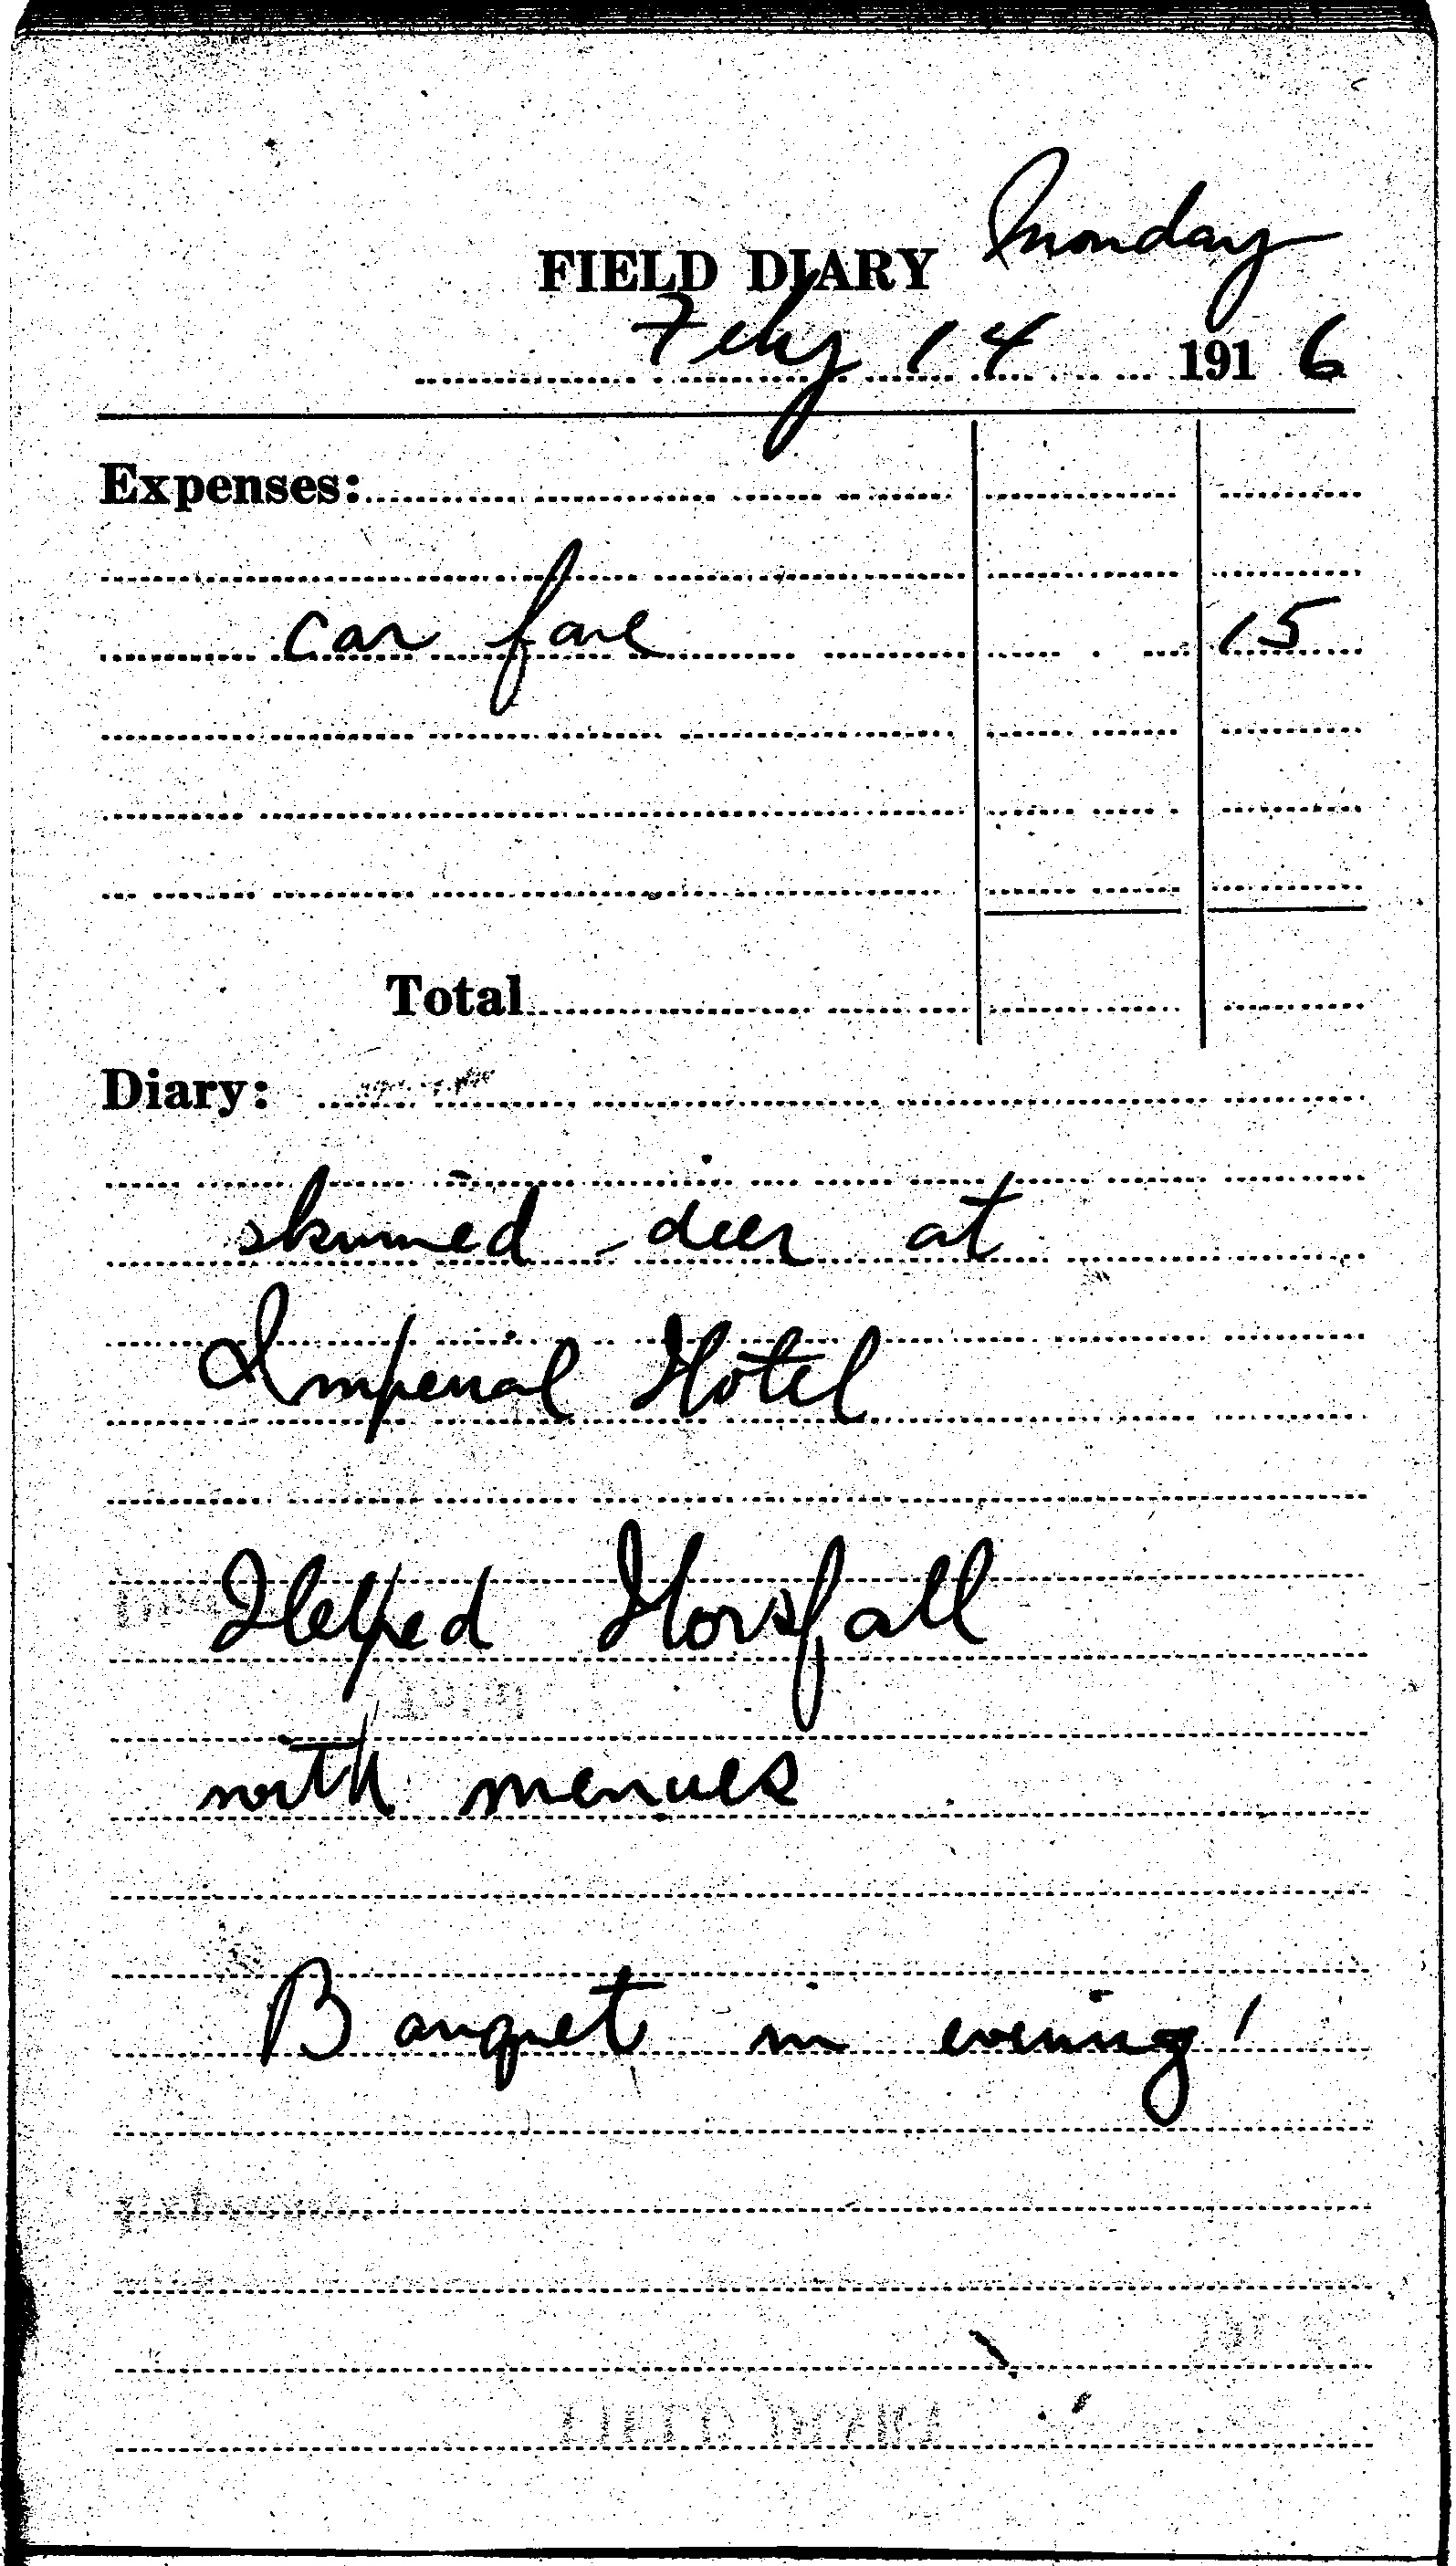 Monday
FIELD DIARY
Feby 14 1916
Expenses:
car fare 15
Total
Diary:
skinned deer at
Imperial Hotel
Helped Horsfall
with menues
Banquet in evening